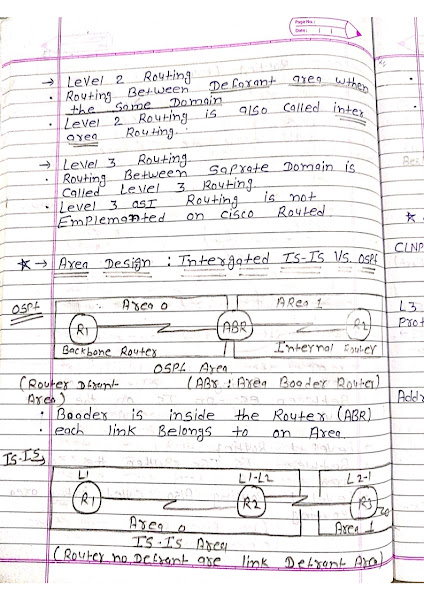 Page No.:
Date:
→ Level 2 Routing
· Routing Between Defarant area wthen
the Same Domain
· Level 2 Routing is also called inter
area Routing.
→ Level 3 Routing
· Routing Between Saprate Domain is
Called Level 3 Routing.
· Level 3 OSI Routing is not
Emplemanted on Cisco Routed
* → Area Design : Intergated IS-IS Vs. OSPf
OSPf
Area 0
ARea 1
R1
ABR
R2
Backbone Router
Internal Router
OSPf Area
(Router Difrant (ABR : Area Boader Router)
Area)
· Boader is inside the Router (ABR)
· each link Belongs to an Area.
IS-IS →
L1
L1-L2
L2-1
R1
R2
R3
Area 0
Area 1
IS-IS Area
(Router no Defrant are link Defrant Area)
CLNP
L3
Prot
Addr